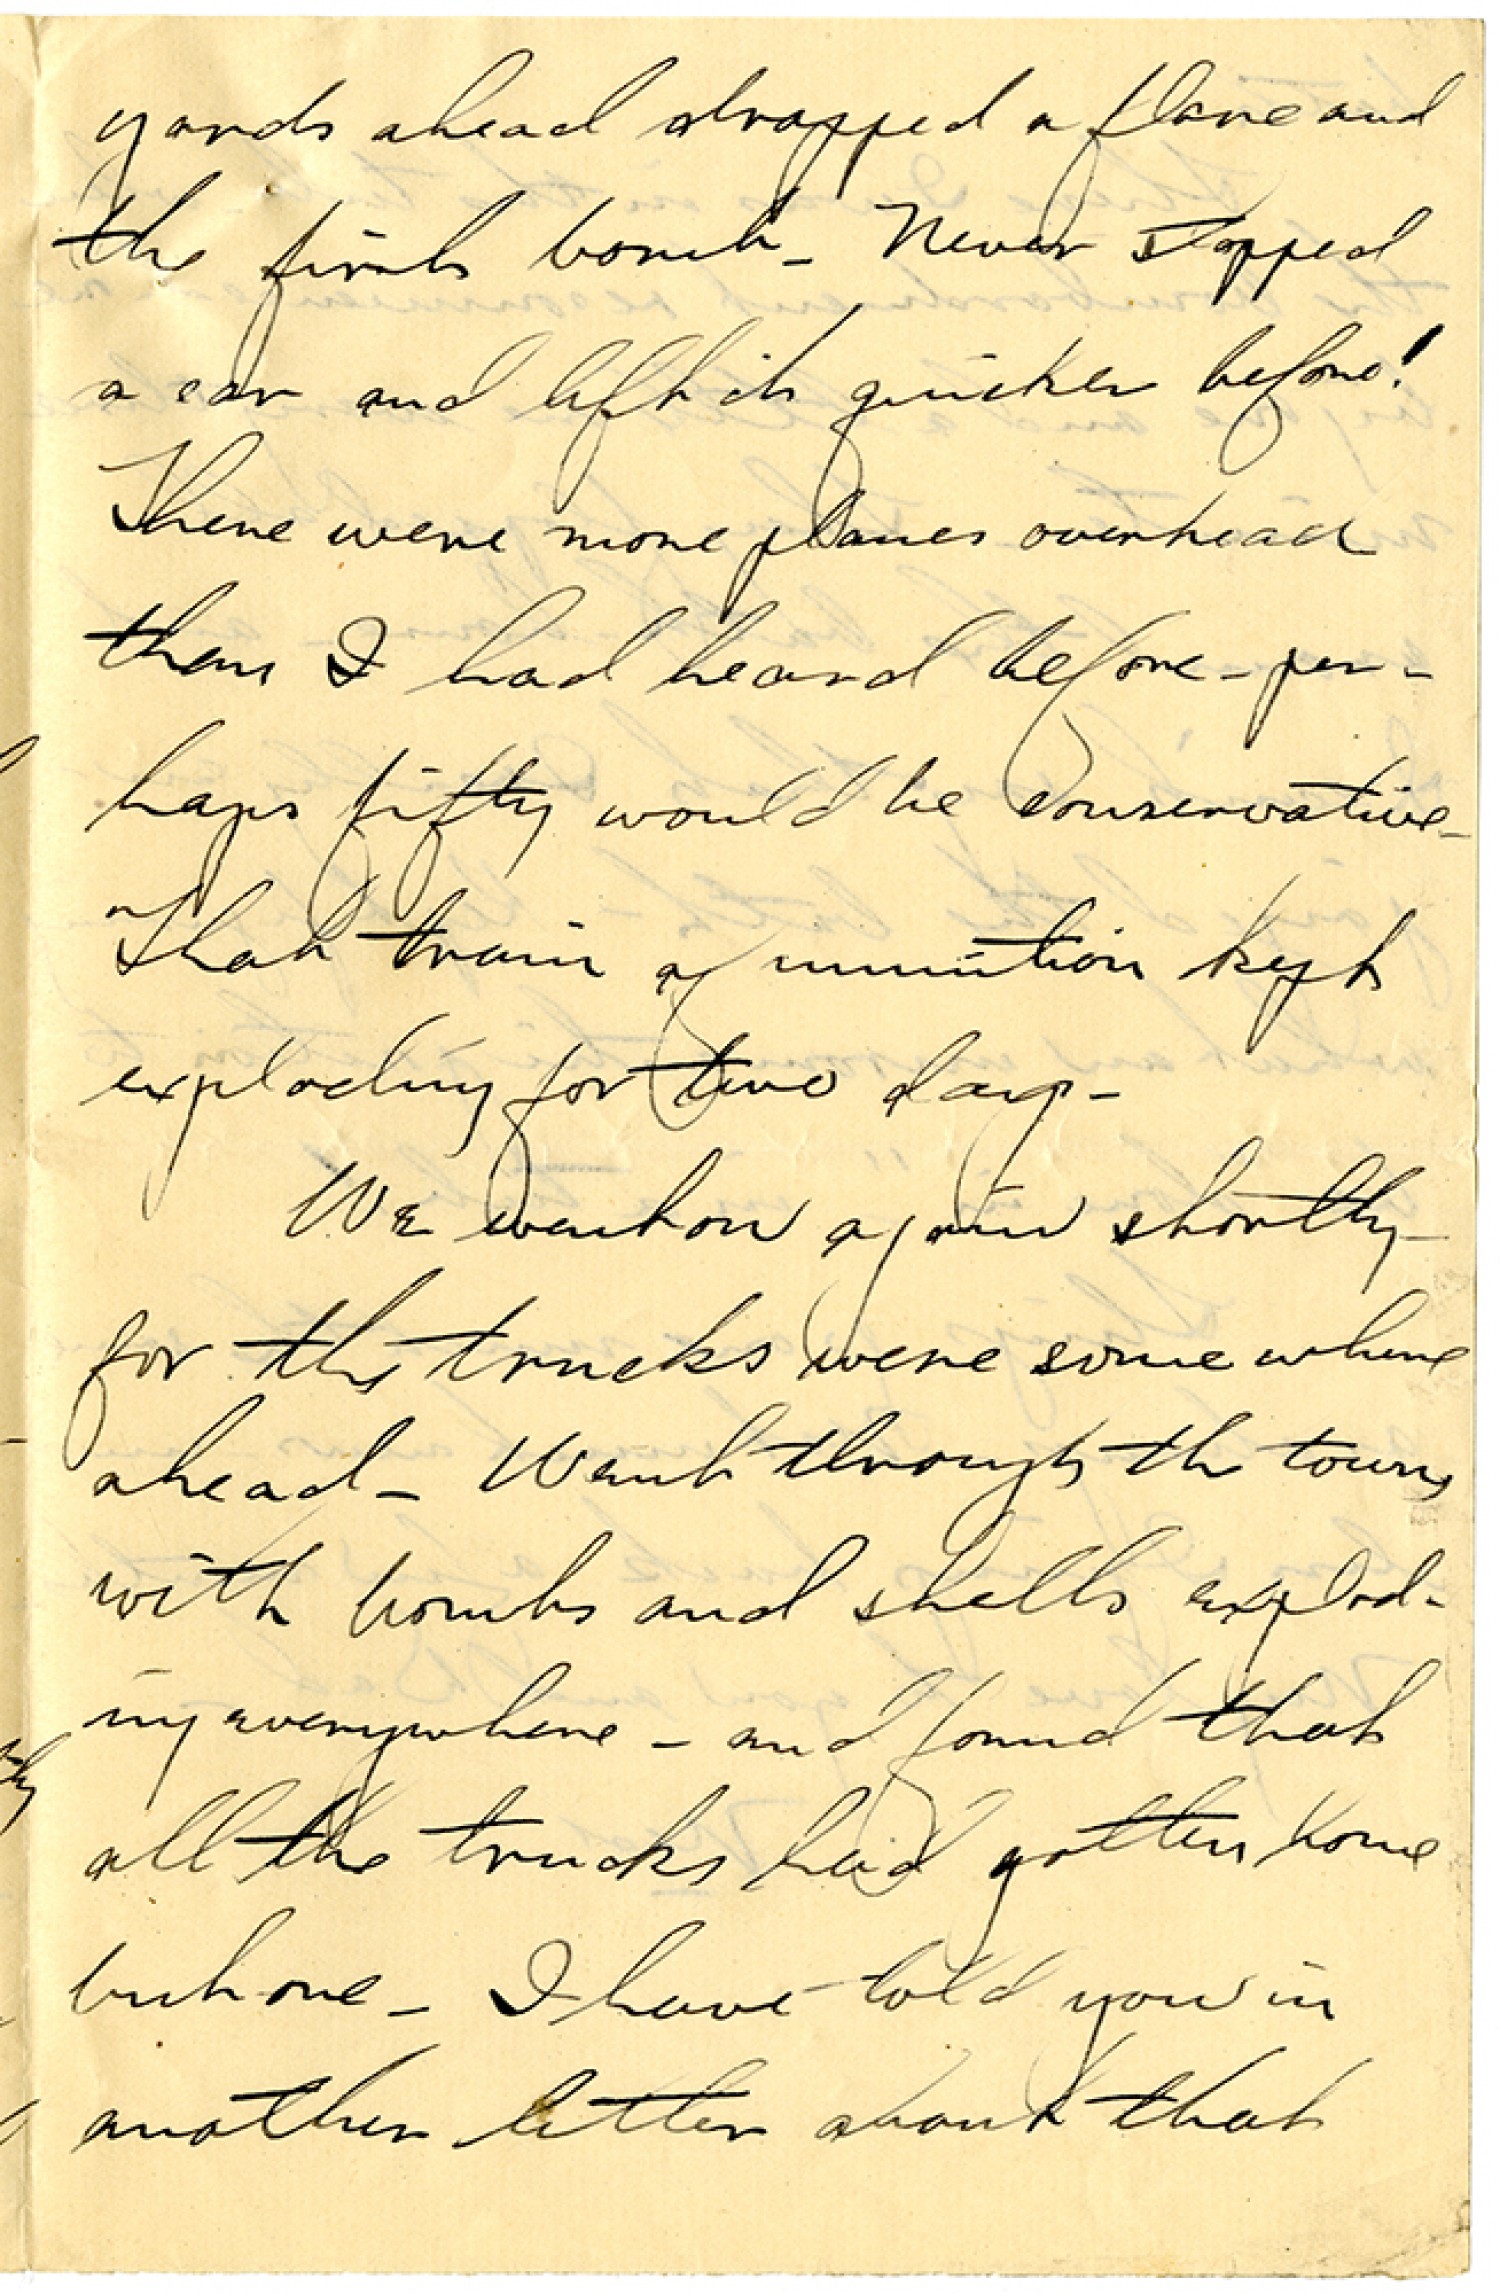 yards ahead dropped a flare and
the first bomb - Never stopped
a car and left it quicker before!
There were more planes overhead
than I had heard before - per-
haps fifty would be conservative -
That train of munition kept
exploding for two days -
We went on again shortly -
for the trucks were some where
ahead - Went through the town,
with bombs and shells explod-
ing everywhere - and found that
all the trucks had gotten home
but one - I have told you in
another letter about that